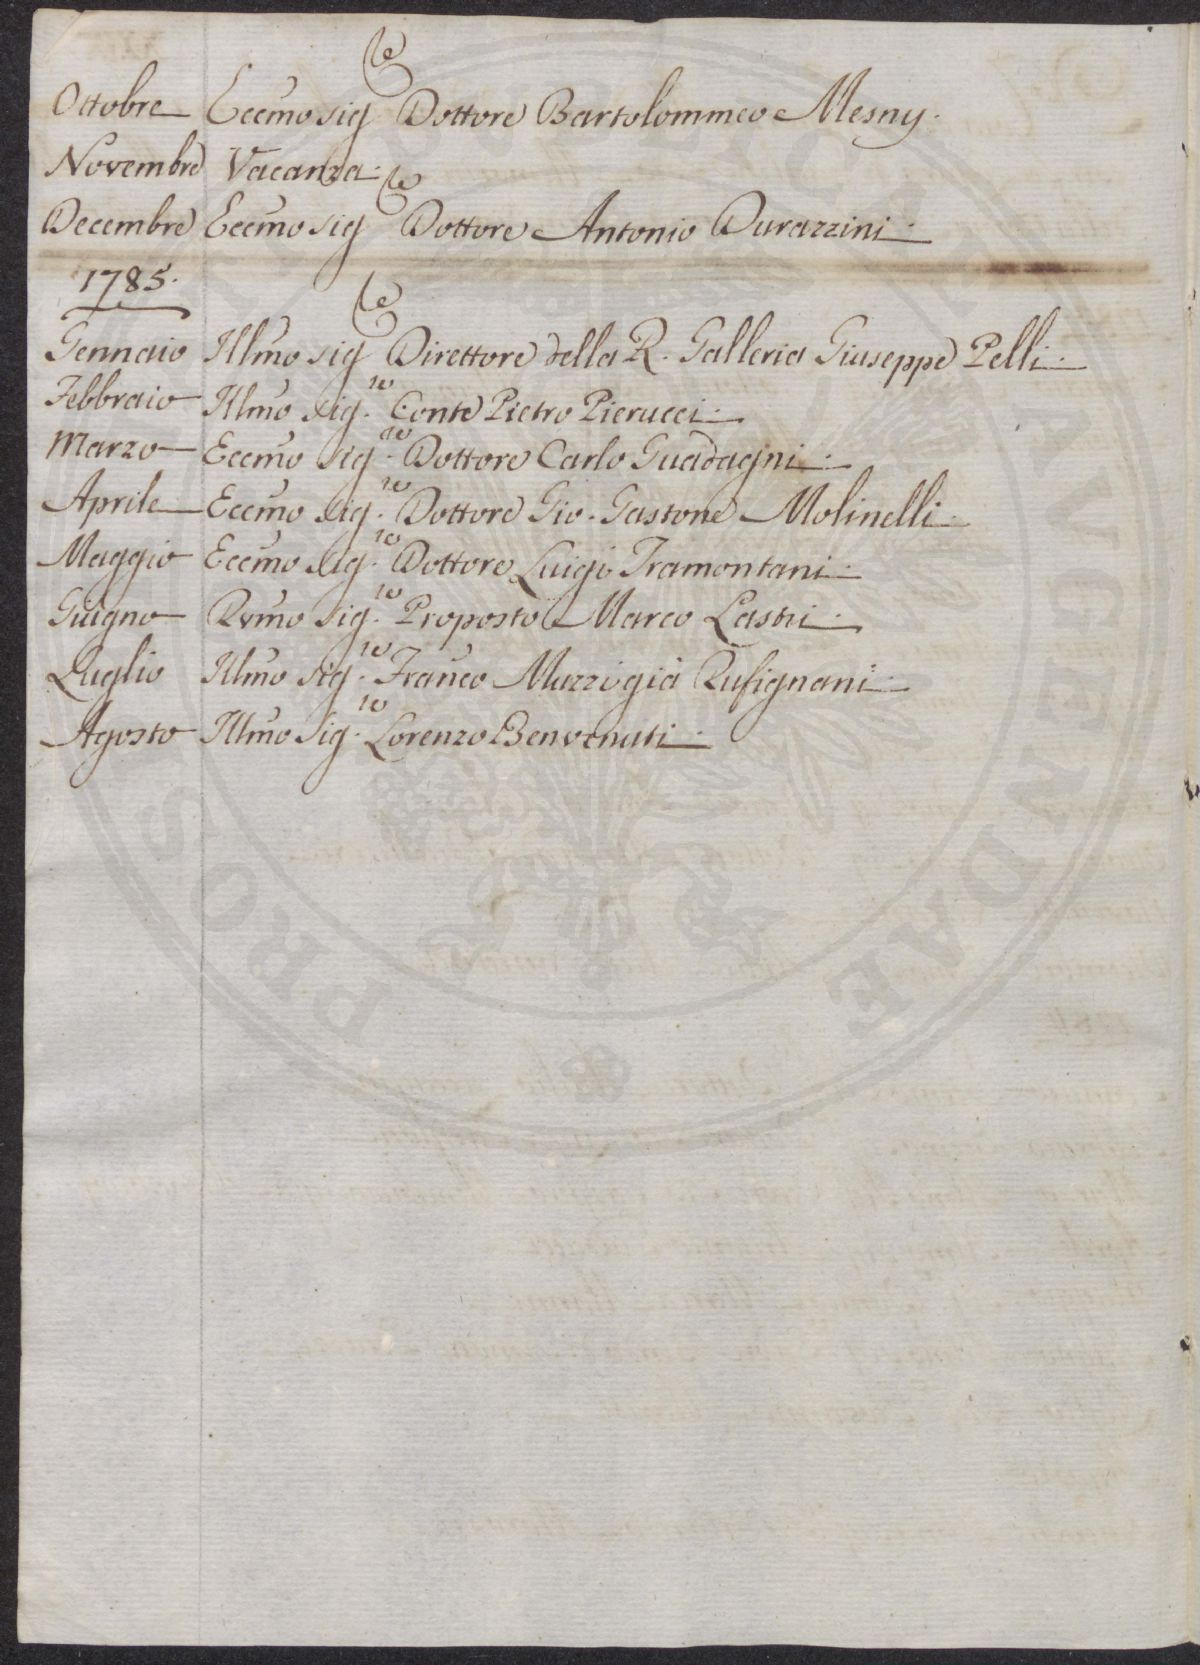 Ottobre Eccmo Sigre Dottore Bartolommeo Mesny.
Novembre Vacanza.
Decembre Eccmo Sigre Dottore Antonio Durazzini.
1785.
Gennaio Illmo Sigre Direttore della R. Galleria Giuseppe Pelli.
Febbraio Illmo Sig.re Conte Pietro Pierucci.
Marzo Eccmo Sig.re Dottore Carlo Guadagni.
Aprile Eccmo Sig.re Dottore Gio. Gastone Molinelli.
Maggio Eccmo Sig.re Dottore Luigi Tramontani.
Giugno Rvmo Sig.re Proposto Marco Lastri.
Luglio Illmo Sig.re Franco Muzzi già Rufignani.
Agosto Illmo Sig.re Lorenzo Benvenuti.